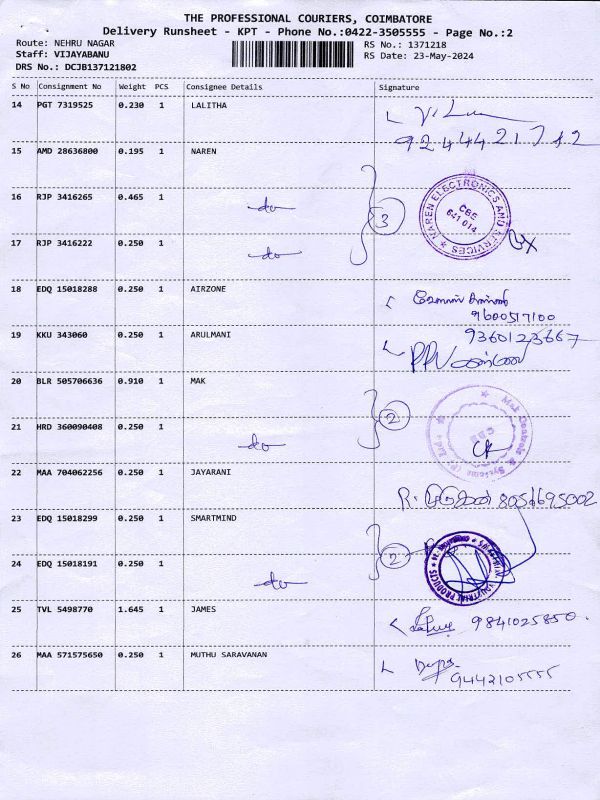 THE PROFESSIONAL COURIERS, COIMBATORE
Delivery Runsheet - KPT - Phone No.:0422-3505555 - Page No.:2
Route: NEHRU NAGAR RS No.: 1371218
Staff: VIJAYABANU RS Date: 23-May-2024
DRS No.: DCJB137121802
S No Consignment No Weight PCS Consignee Details Signature
14 PGT 7319525 0.230 1 LALITHA
15 AMD 28636800 0.195 1 NAREN
16 RJP 3416265 0.465 1 do
3
NAREN ELECTRONICS AND SERVICES
CBE
641 014
17 RJP 3416222 0.250 1 do
18 EDQ 15018288 0.250 1 AIRZONE
9600517100
19 KKU 343060 0.250 1 ARULMANI
9360123667
20 BLR 505706636 0.910 1 MAK
2
Mak Controls & Systems (P) Ltd
21 HRD 360090408 0.250 1 do
22 MAA 704062256 0.250 1 JAYARANI
23 EDQ 15018299 0.250 1 SMARTMIND
2
24 EDQ 15018191 0.250 1 do
25 TVL 5498770 1.645 1 JAMES
9841025850.
26 MAA 571575650 0.250 1 MUTHU SARAVANAN
9442105555